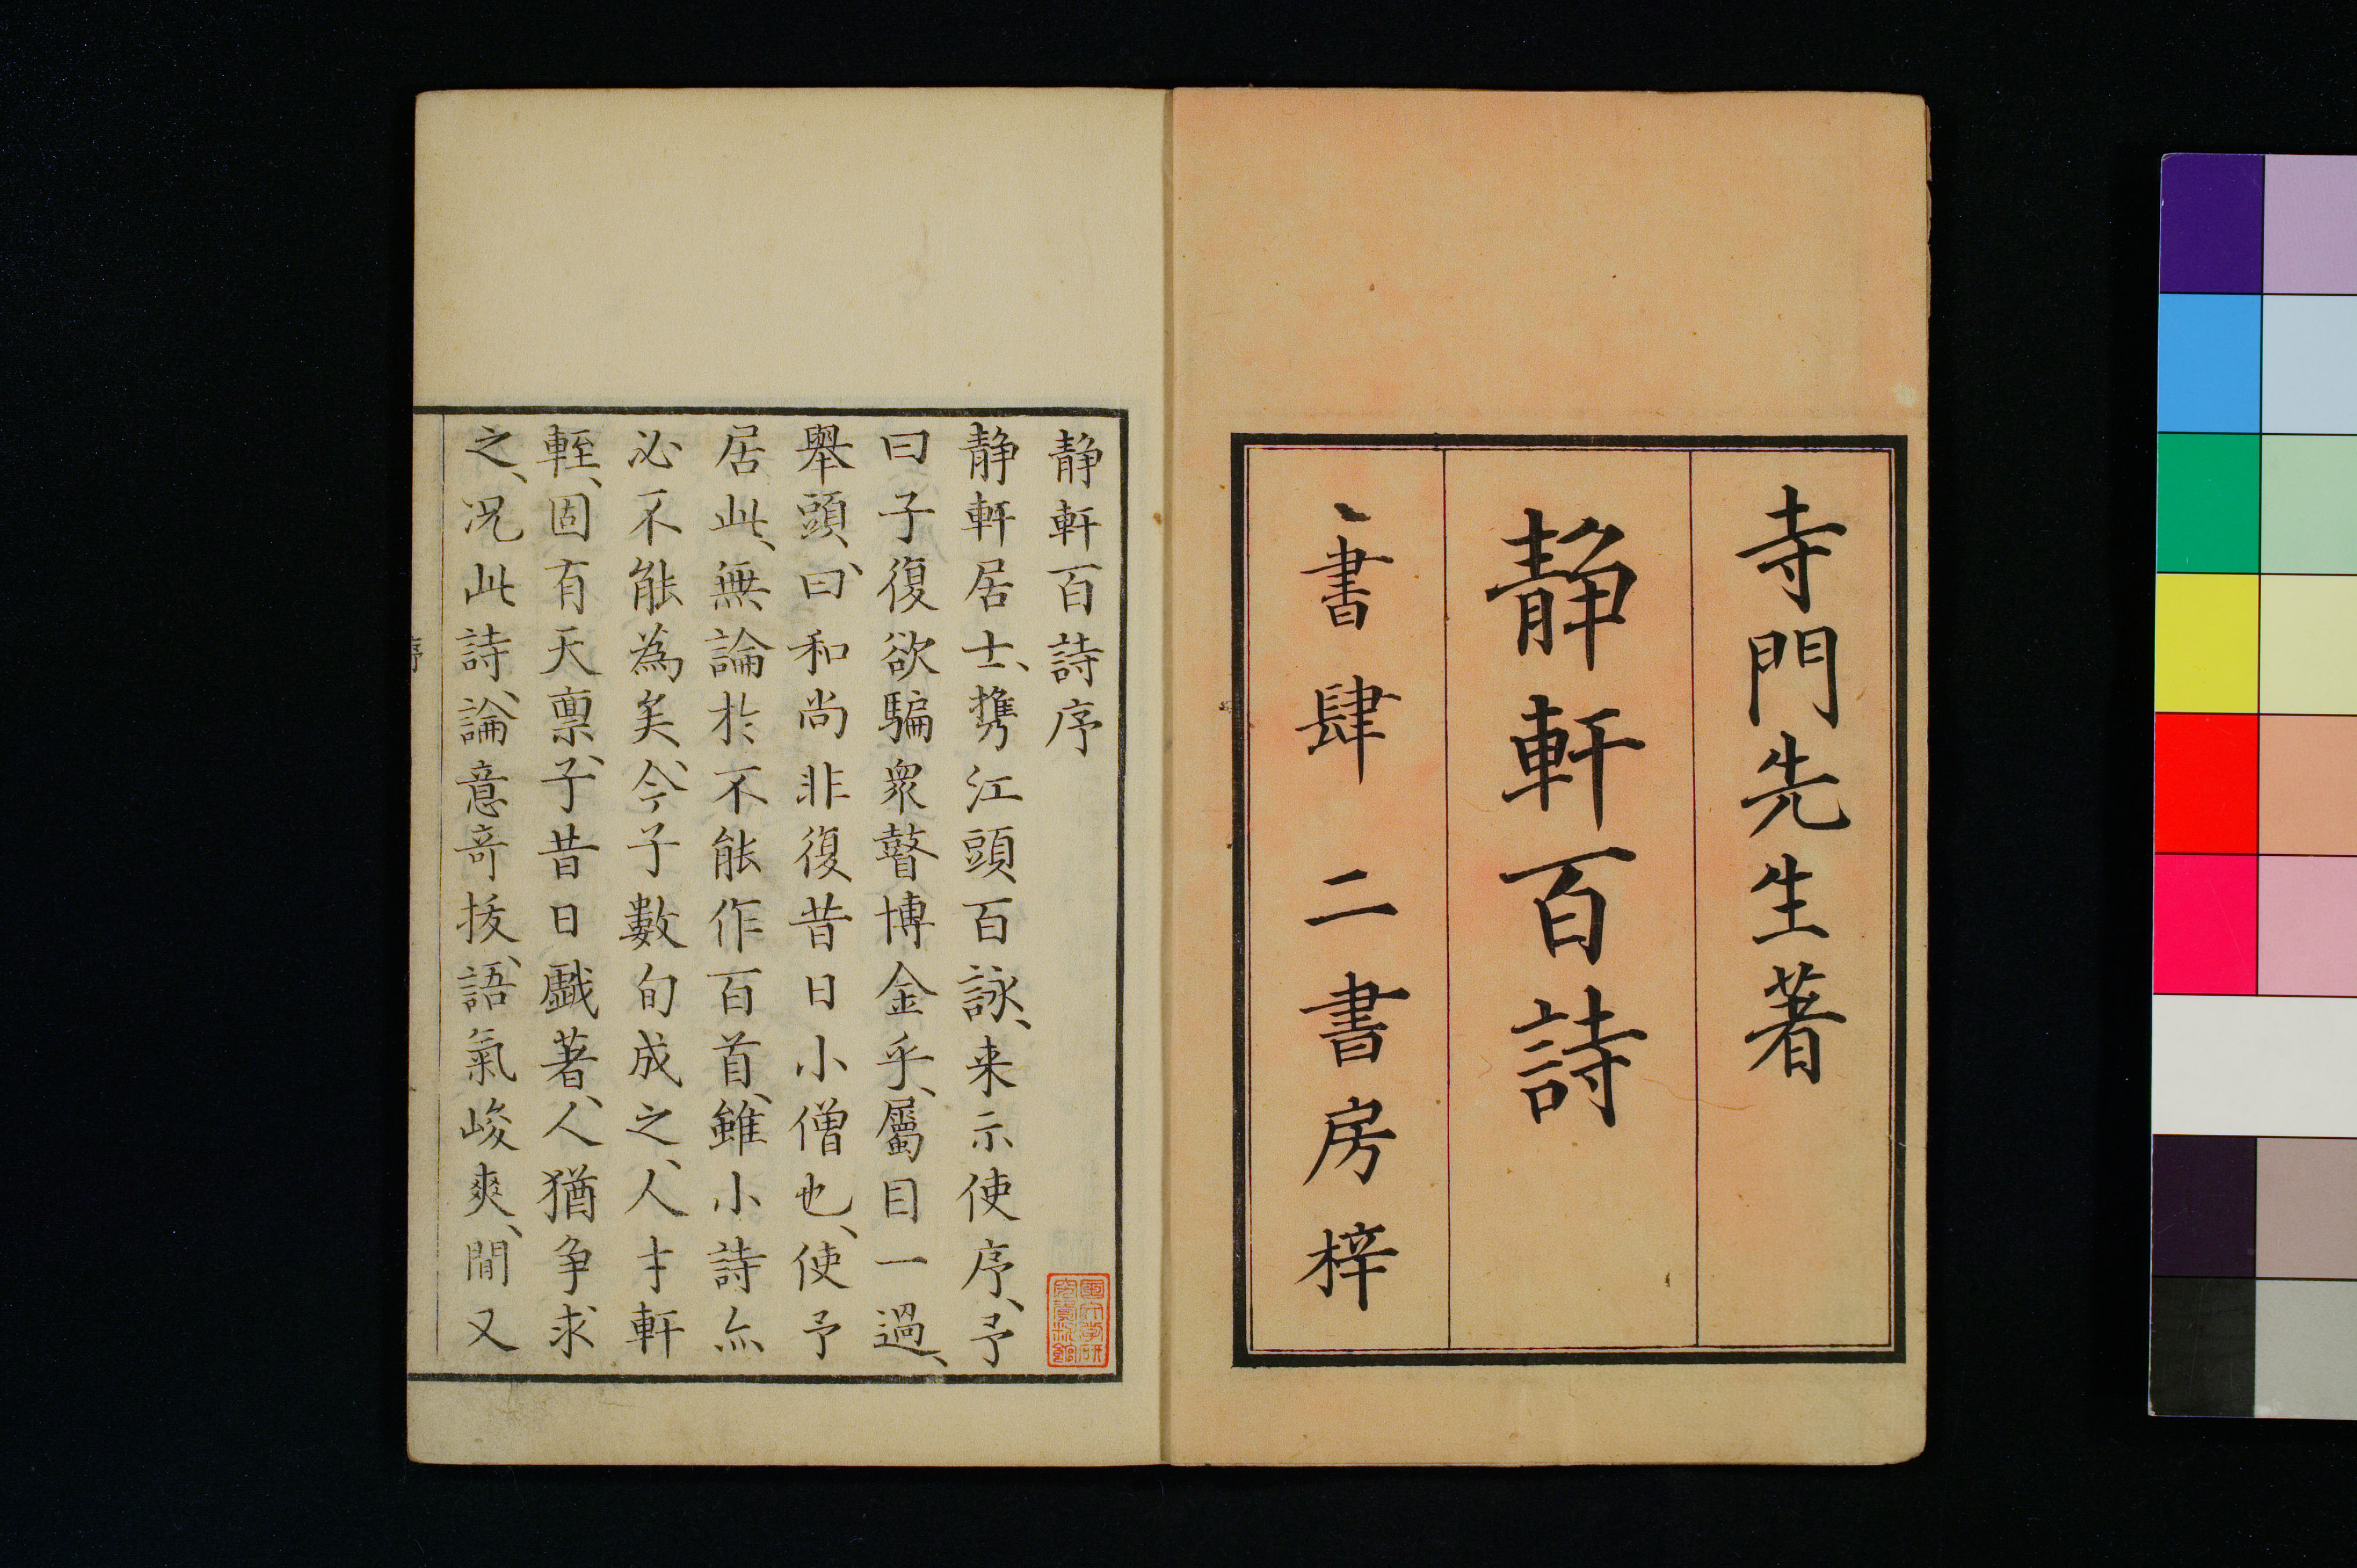 寺門先生著
静軒百詩
書肆二書房梓
静軒百詩序
静軒居士、携江頭百詠、来示使序、予
曰子復欲騙衆瞽博金乎、屬目一過、
舉頭、曰、和尚非復昔日小僧也、使予
居此、無論於不能作百首、雖小詩亦
必不能為矣、今子數旬成之、人才軒
輊、固有天禀、子昔日戯著、人猶争求
之、况此詩、論意奇拔、語氣峻爽、間又